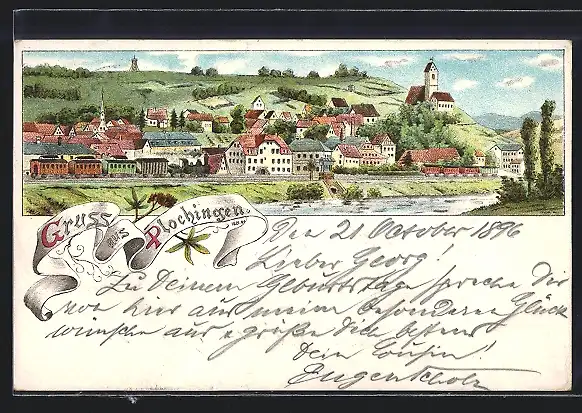 Gruss aus Plochingen.
Den 21 October 1896
Lieber Georg!
Zu Deinem Geburtstage spreche Dir
von hier aus meine besonderen Glück
wünsche aus & grüße Dich bestens
Dein Cousin!
Eugen Scholz